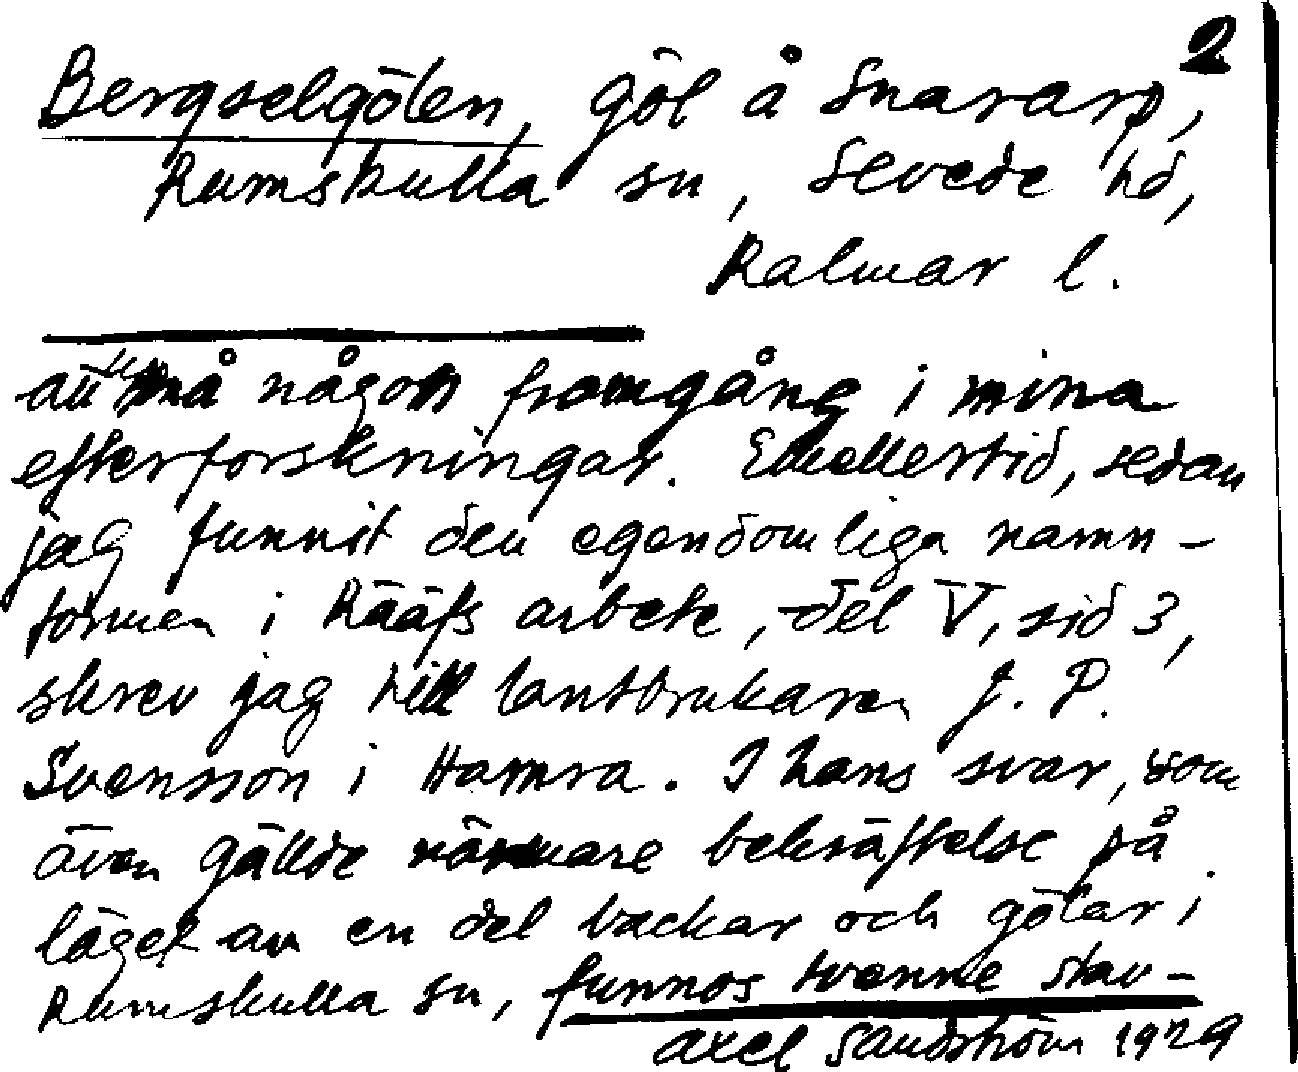 2
Bergselgölen, göl å Snararp,
Rumskulla sn, Sevede hd,
Kalmar l.
att nå någon framgång i mina
efterforskningar. Emellertid, sedan
jag funnit den egendomliga namn-
formen i Rääfs arbete, del V, sid 3,
skrev jag till lantbrukaren J. P.
Svensson i Hamra. I hans svar, som
även gällde närmare bekräftelse på
läget av en del backar och gölar i
Rumskulla sn, funnos tvenne stav-
Axel Sandström 1929